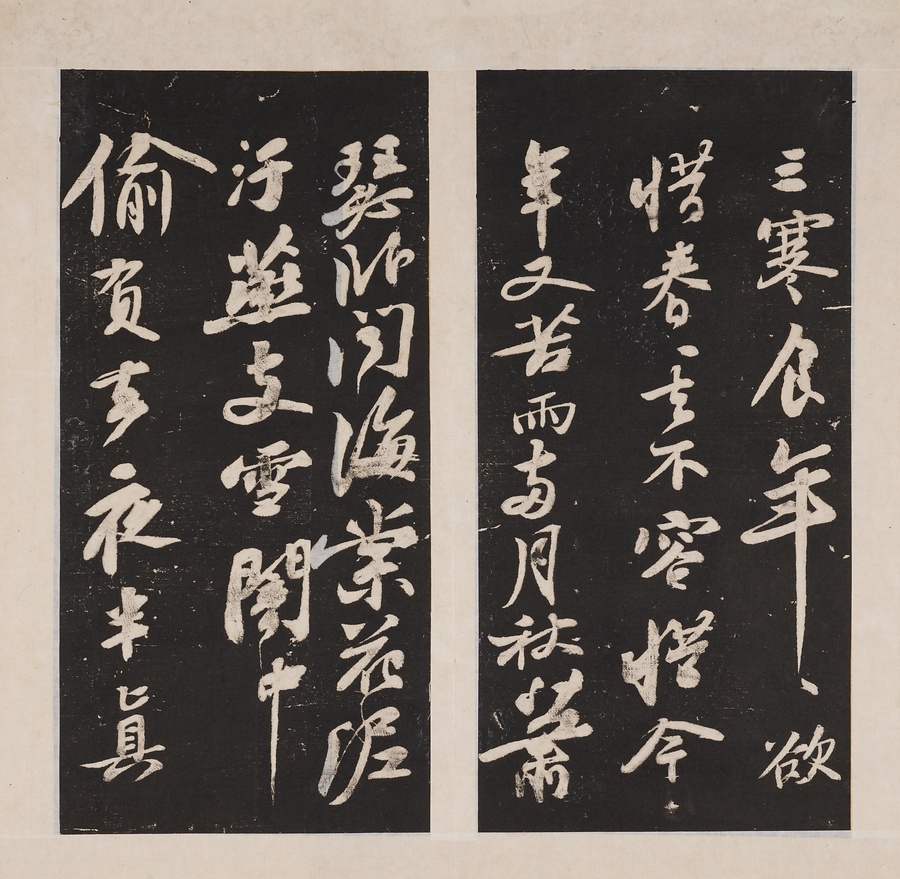 三寒食年〻欲
惜春〻去不容惜今
年又苦雨兩月秋蕭
瑟卧聞海棠花泥
汙燕支雪闇中
偷負去夜半真